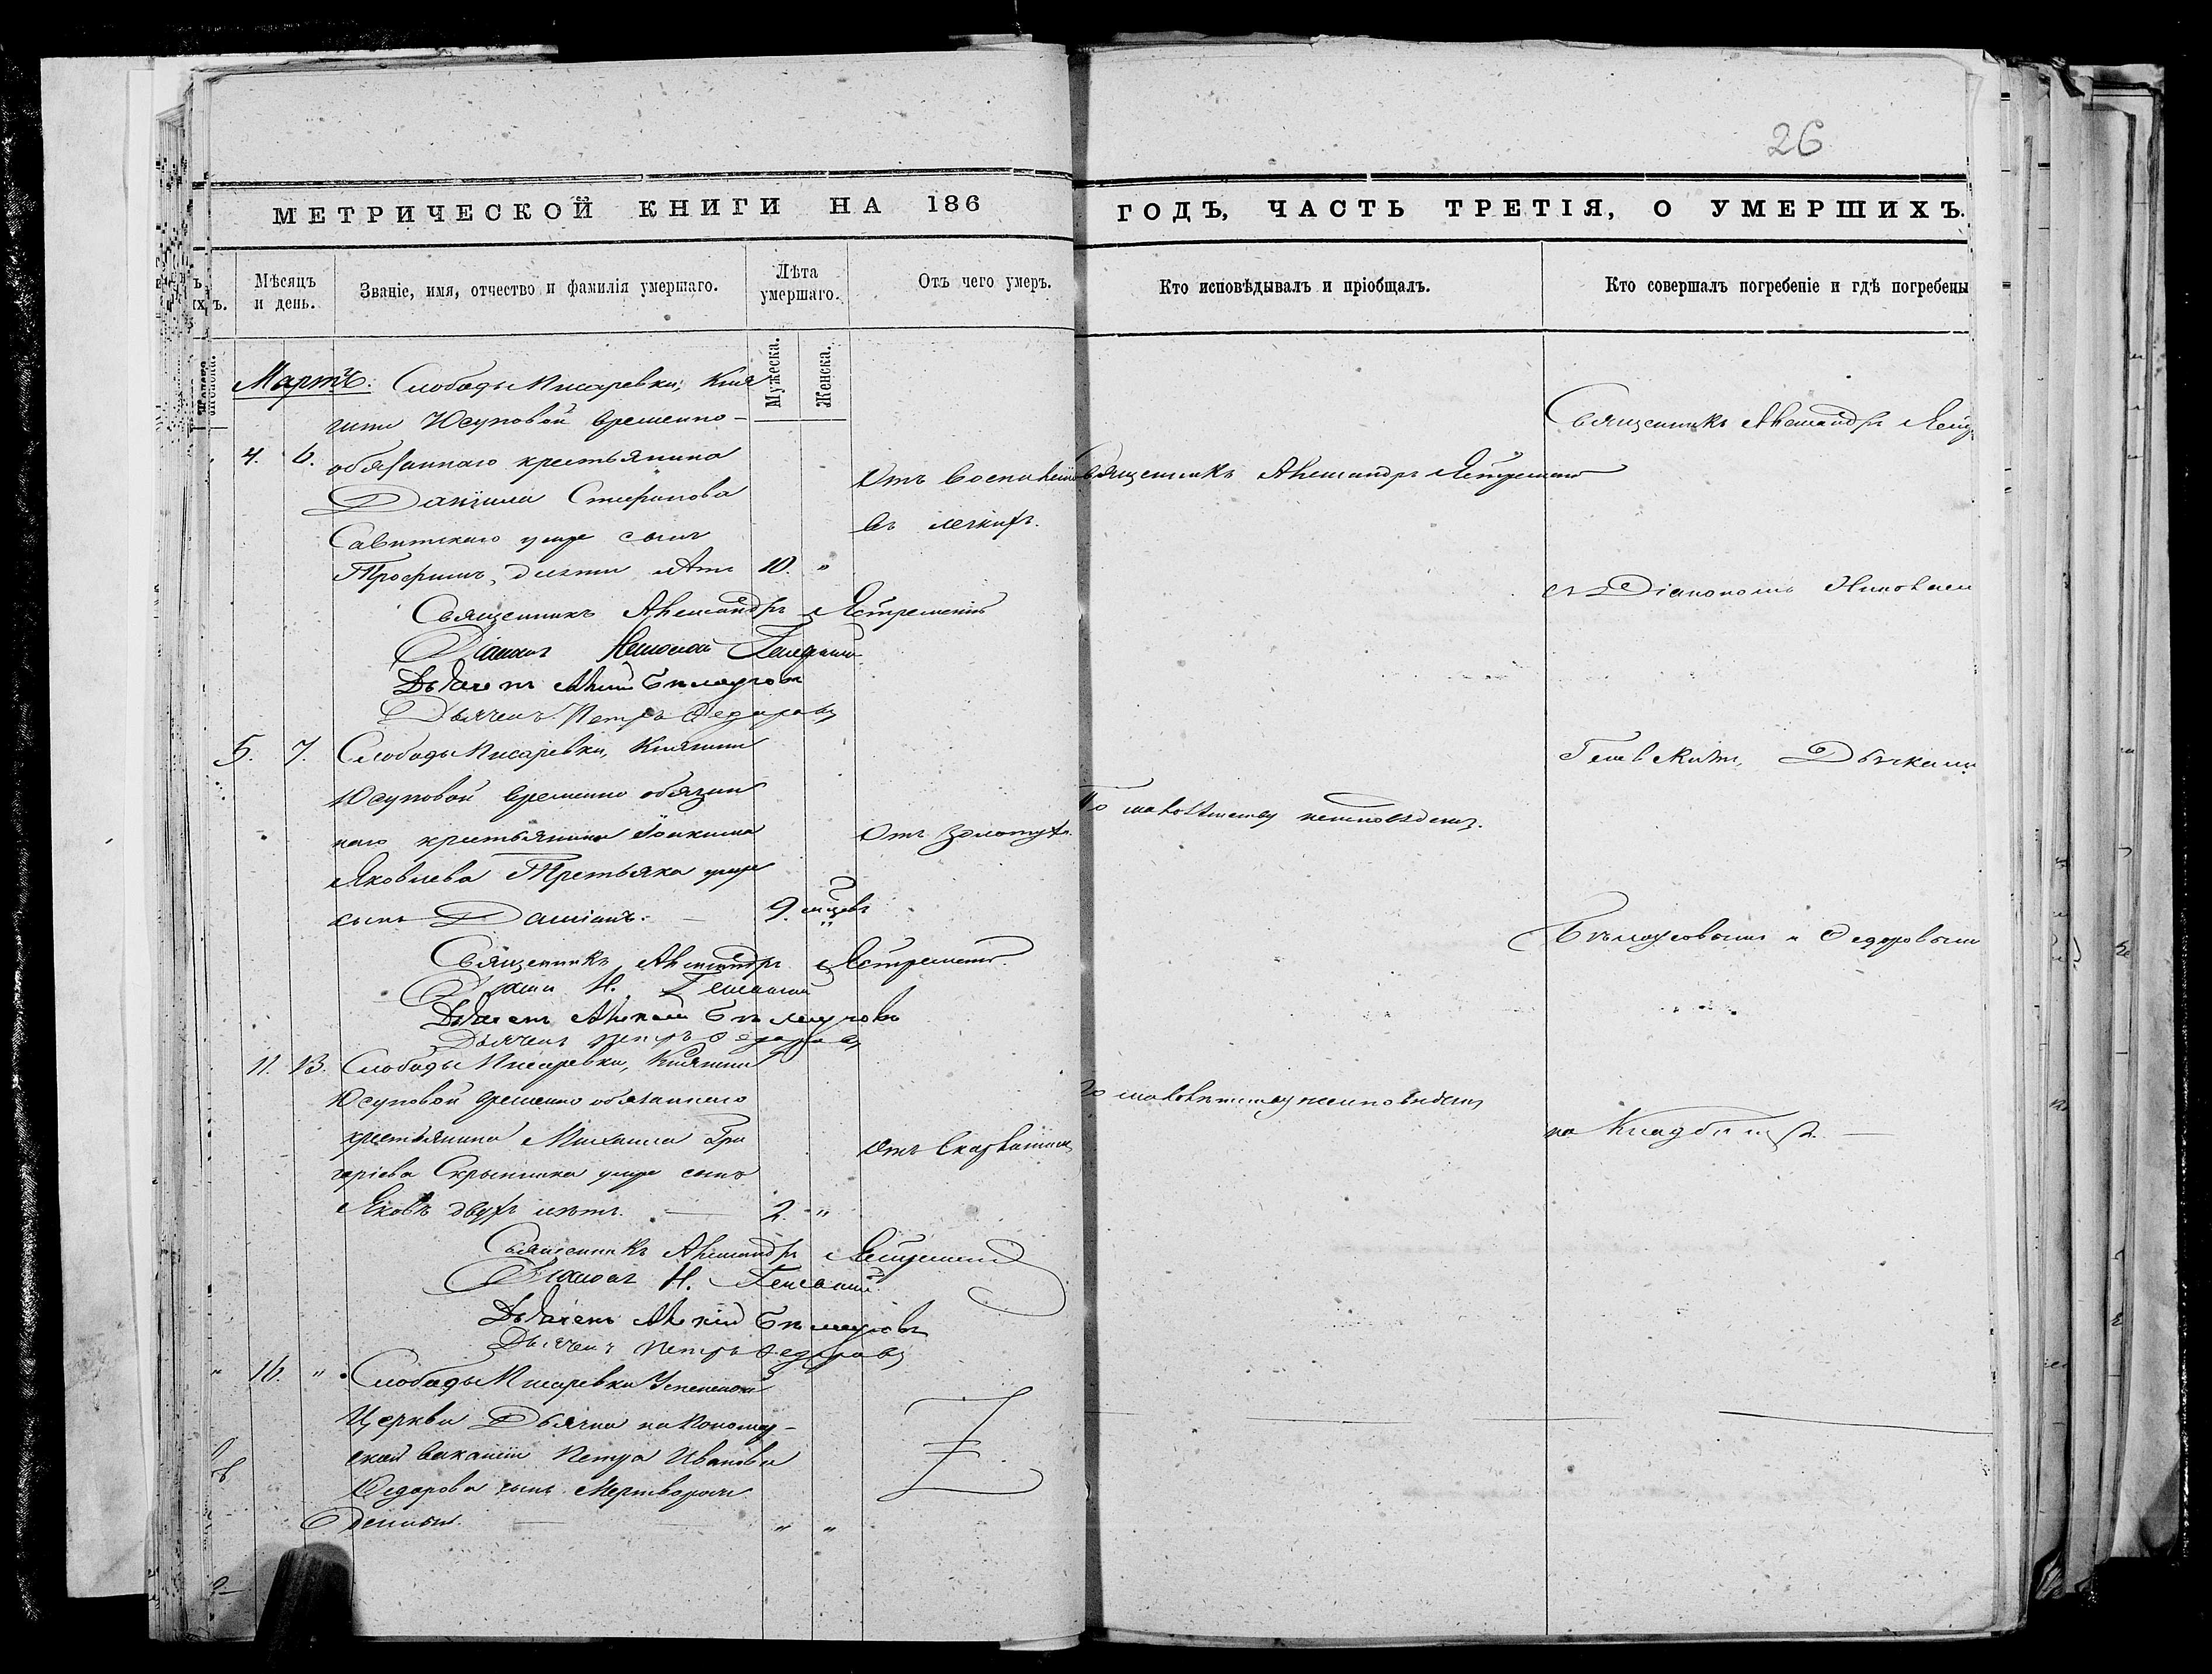 26
МЕТРИЧЕСКОЙ КНИГИ НА 186
ГОДЪ, ЧАСТЬ ТРЕТІЯ, О УМЕРШИХЪ.
Мѣсяцъ и день.
Званіе, имя, отчество и фамилія умершаго.
Лѣта умершаго.
Мужеска.
Женска.
Отъ чего умеръ.
Кто исповѣдывалъ и пріобщалъ.
Кто совершалъ погребеніе и гдѣ погребены
Мартъ. Слободы Писаревки, Кня
гини Юсуповой временно-
4. 6. обязаннаго крестьянина
Даніила Стефанова
умре сынъ
Трофимъ, десяти лѣтъ 10. "
Отъ воспаленія
въ легкихъ.
Священникъ Александръ
Священникъ Александръ
Діаконъ Николай
Дьячекъ
Дьячекъ Петръ Федоровъ
5. 7. Слободы Писаревки, Княгини
Юсуповой временно обязан
наго крестьянина Іоакима
Яковлева Третьяка умре
сынъ Даміанъ. — 9. мѣсяцевъ
Отъ золотухи
По малолѣтству неисповѣданъ.
Священникъ Александръ
Н.
Дьячекъ
Дьячекъ Петръ Федоровъ
11. 13. Слободы Писаревки, Княгини
Юсуповой временно обязаннаго
крестьянина Михаила Гри
горіева Скрыпника умре сынъ
Яковъ двухъ лѣтъ. — 2. "
Отъ
По малолѣтству неисповѣданъ
Священникъ Александръ
Діаконъ Н.
Дьячекъ
Дьячекъ Петръ Федоровъ
" 16. " Слободы Писаревки Успенской
Церкви Дьячка на Пономар-
ской вакансіи Петра Иванова
Федорова сынъ Мертворож
денный. — " "
Священникъ Александръ
съ Діакономъ Николаем
Дьячками
и Федоровымъ
на Кладбищѣ. —